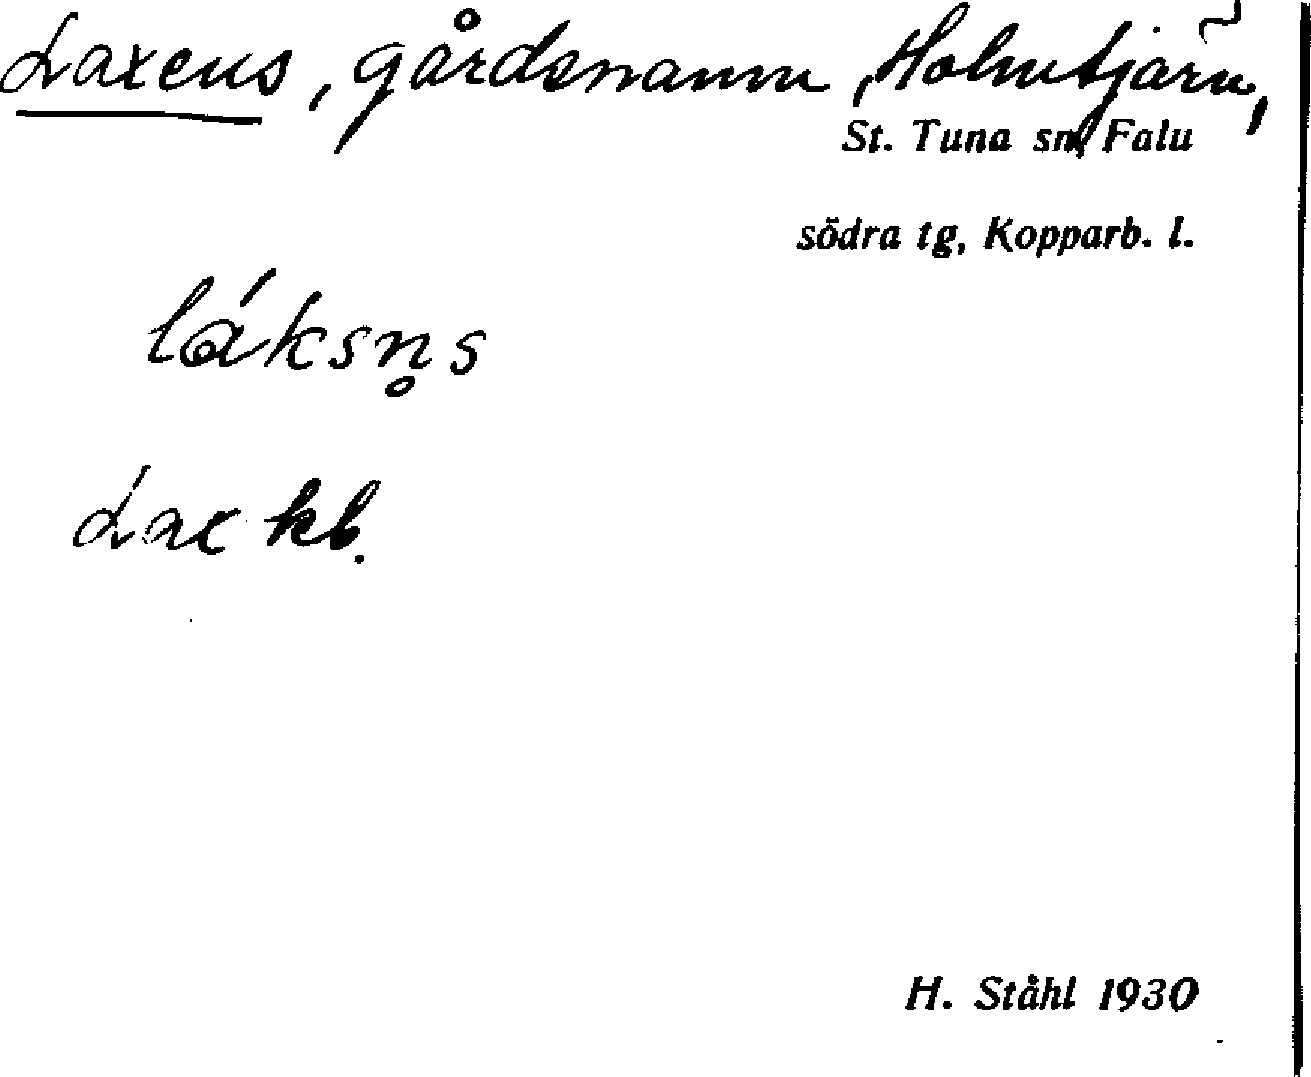 Laxens, gårdsnamn, Holmtjärn,
St. Tuna sn, Falu
södra tg, Kopparb. l.
láksn̥s
Lax kb.
H. Ståhl 1930